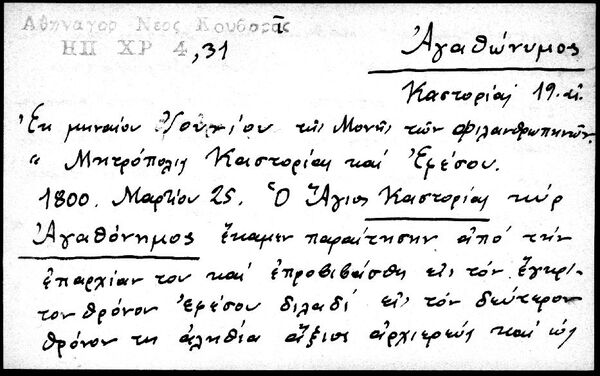 Αθηναγορ Νεος Κουβαρᾶς
ΗΠ ΧΡ 4,31
Ἀγαθώνυμος
Καστορίας 19. αἰ.
Ἐκ μηναίου Ἰουνίου τῆς Μονῆς τῶν Φιλανθρωπηνῶν.
" Μητρόπολις Καστορίας καὶ Ἐφέσου.
1800. Μαρτίου 25. Ὁ Ἅγιος Καστορίας κύρ
Ἀγαθόνημος ἔκαμεν παραίτησην ἀπό τὴν
ἐπαρχίαν του καὶ ἐπροβιβάσθη εἰς τὸν ἔγκρι-
τον θρόνον Ἐφέσου διλαδί εἰς τὸν δεύτερον
θρόνον τη ἀληθία ἄξιος ἀρχιερεύς καὶ ὡς